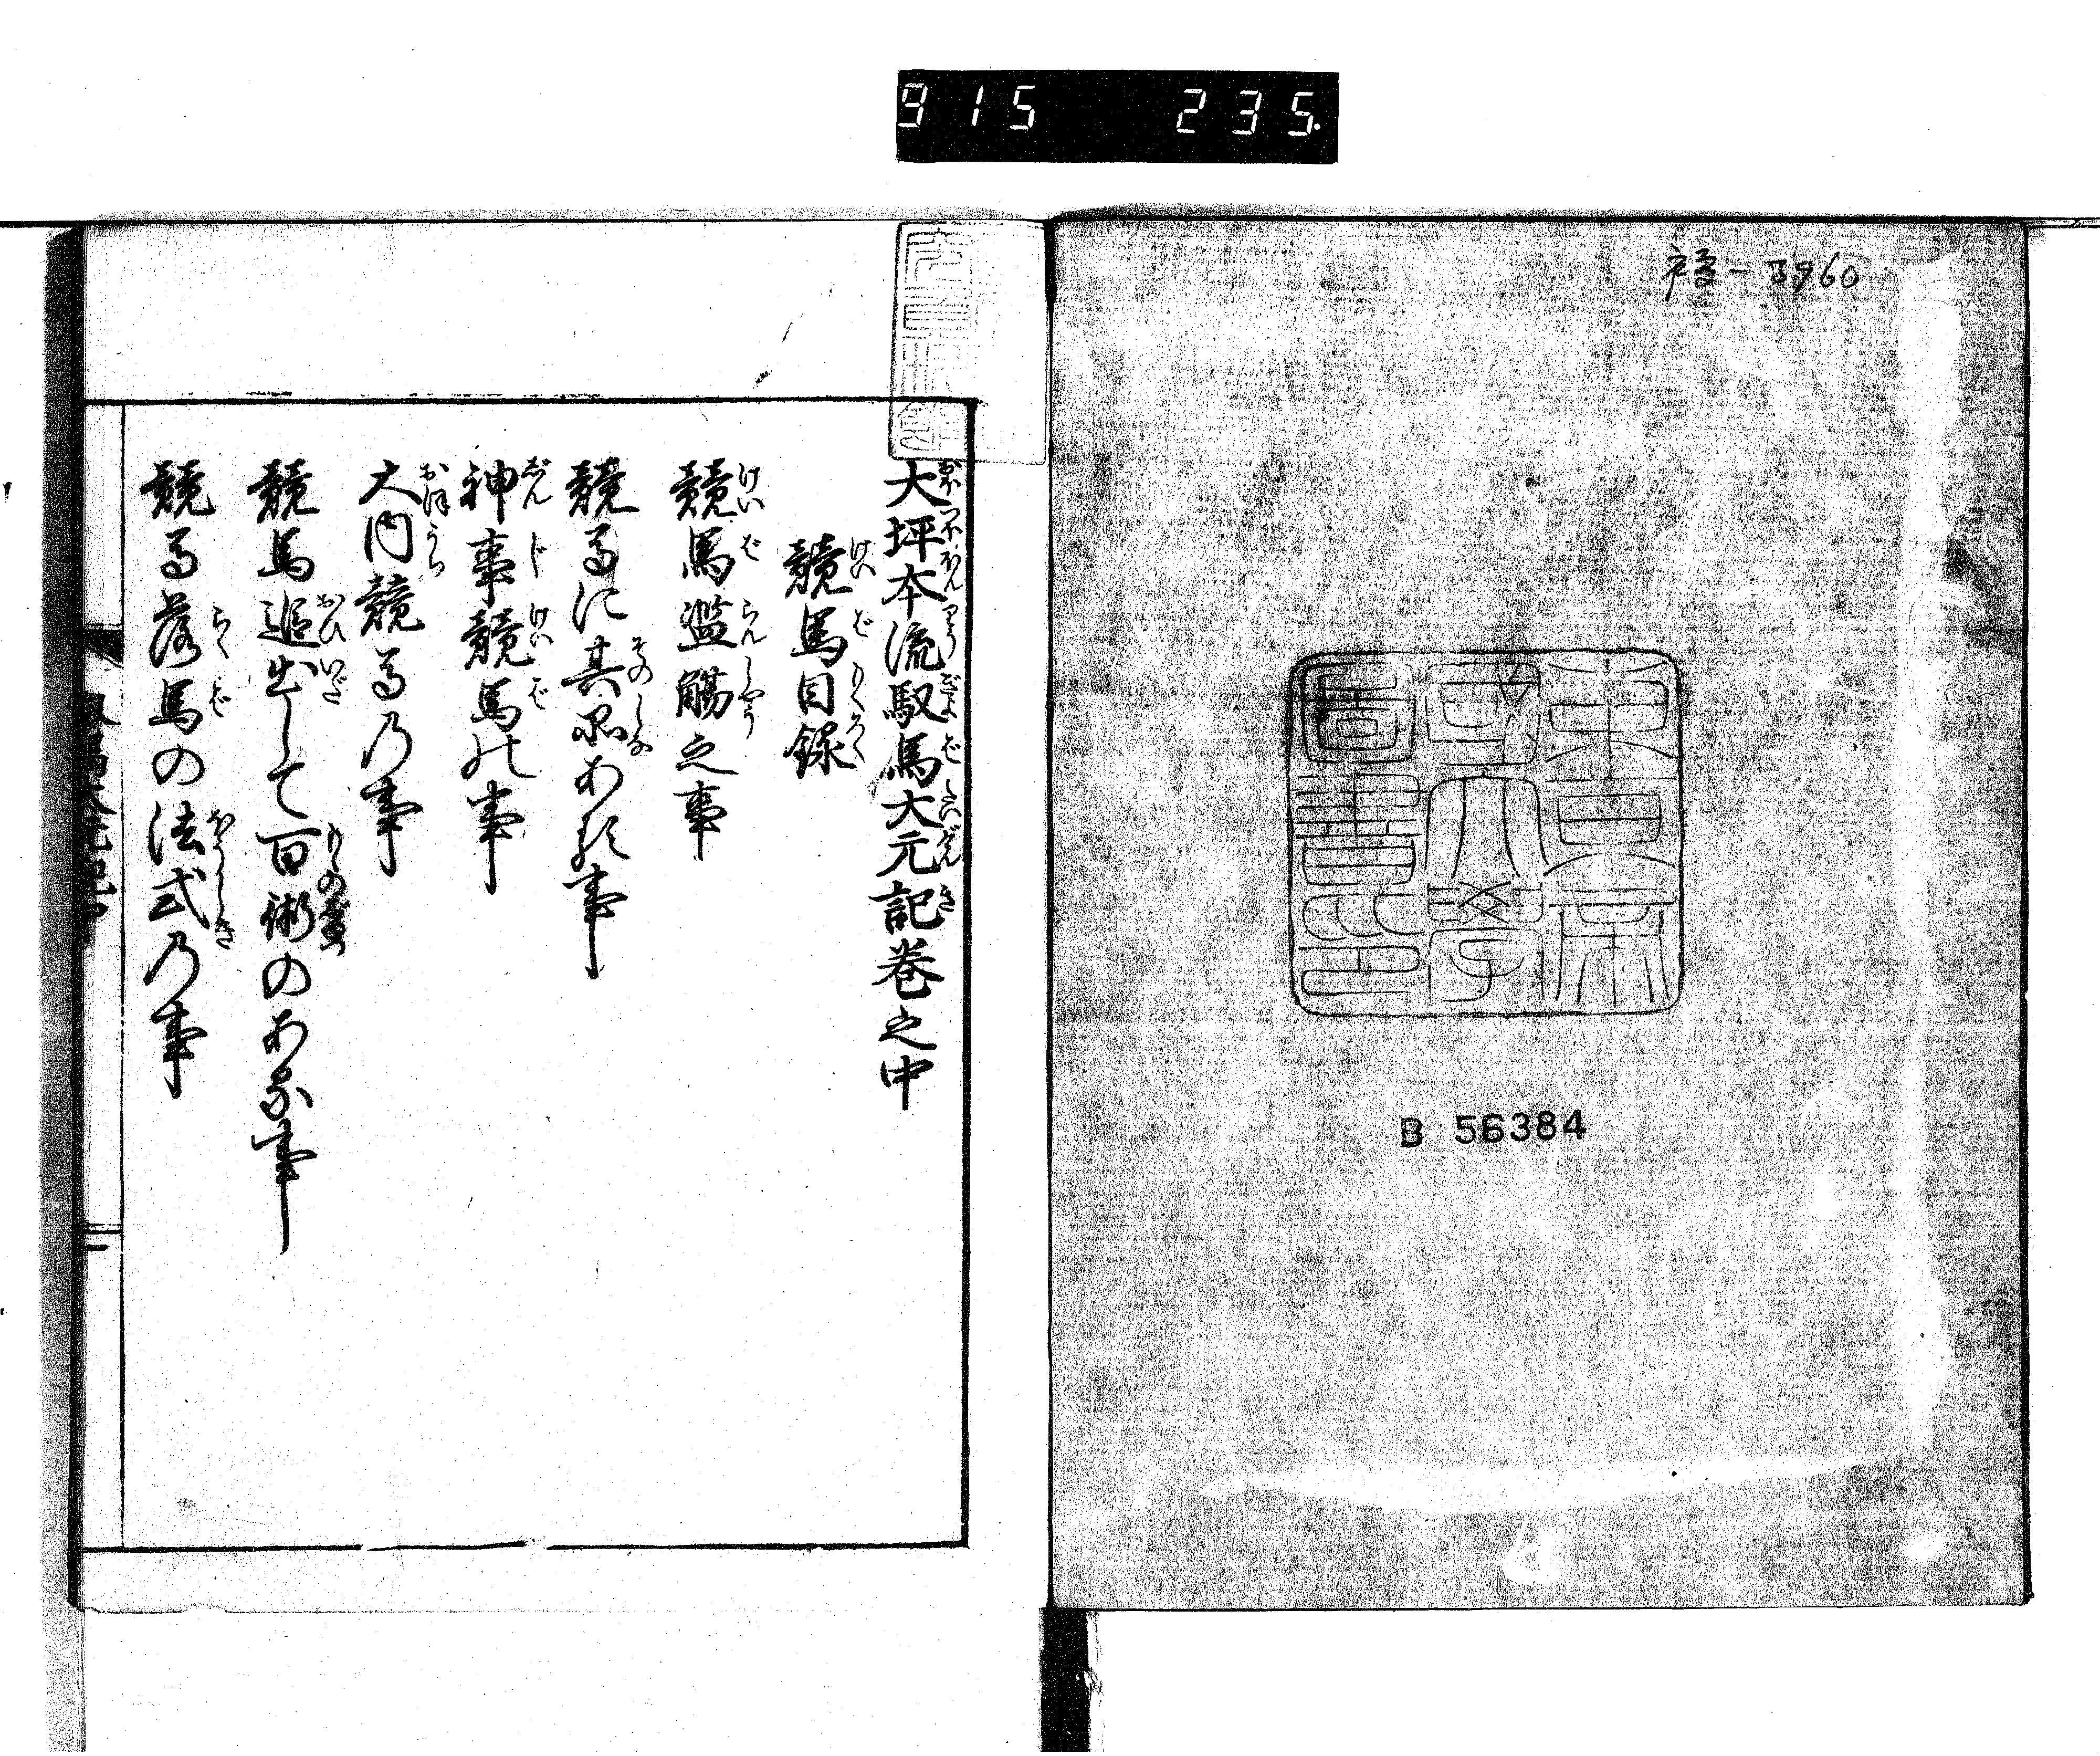 915 235.
椿-3960
東京帝國大學圖書之印
B 56384
大坪本流馭馬大元記巻之中
競馬目録
競馬濫觴之事
競馬に其品ある事
神事競馬の事
大内競馬乃事
競馬追出して百術のある事
競馬落馬の法式乃事